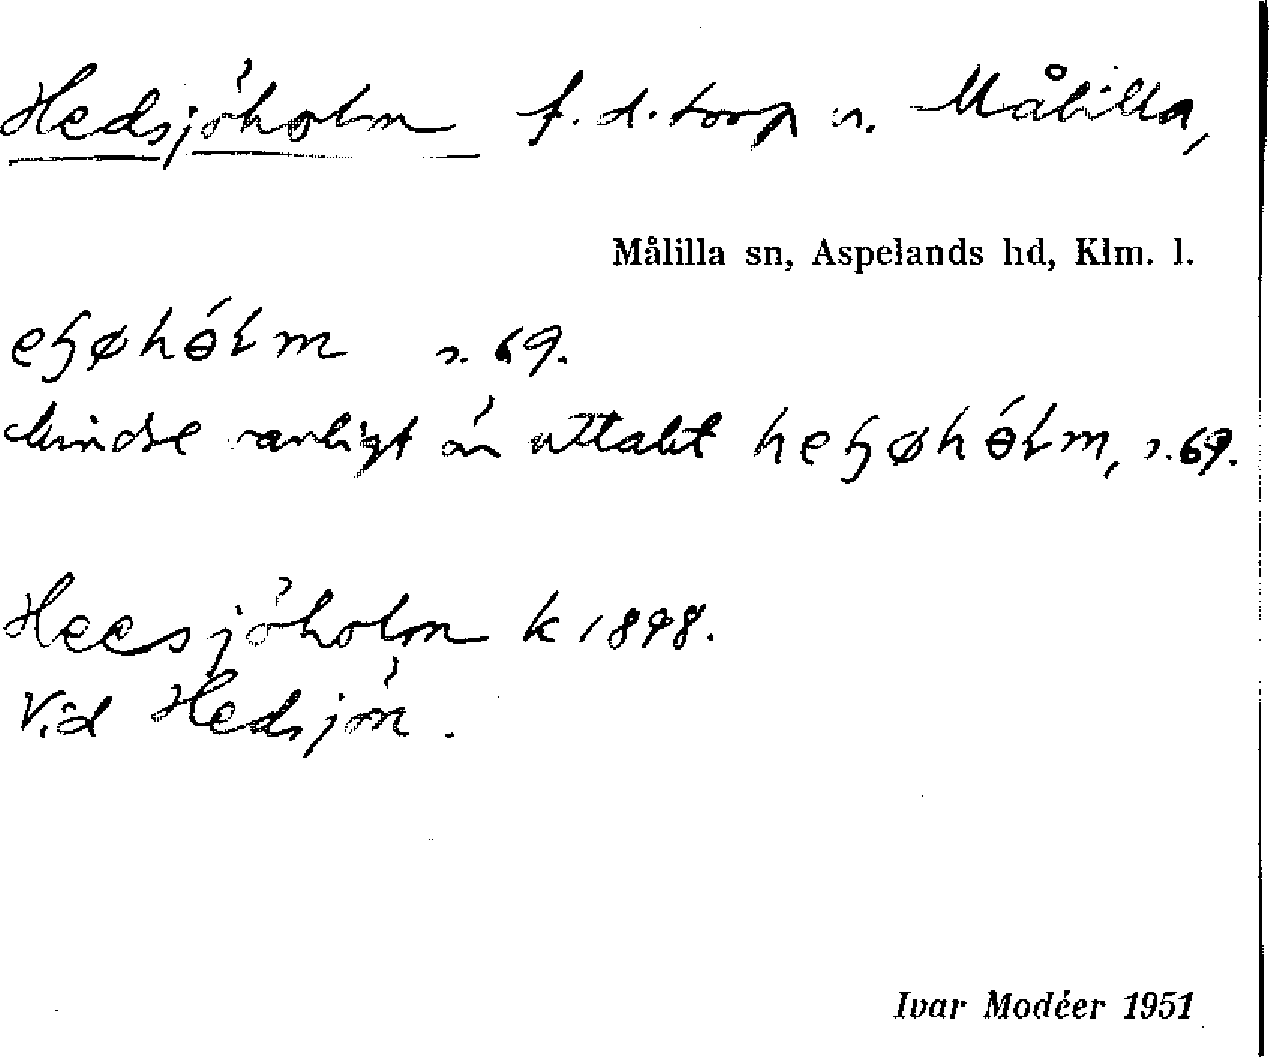 Hedsjöholm f.d. torp u. Målilla,
Målilla sn, Aspelands hd, Klm. l.
eɧøhɵ́ɫm s. 69.
Mindre vanligt är uttalet heɧøhɵ́ɫm, s. 69.
Heesjöholm k 1898.
Vid Hedsjön.
Ivar Modéer 1951